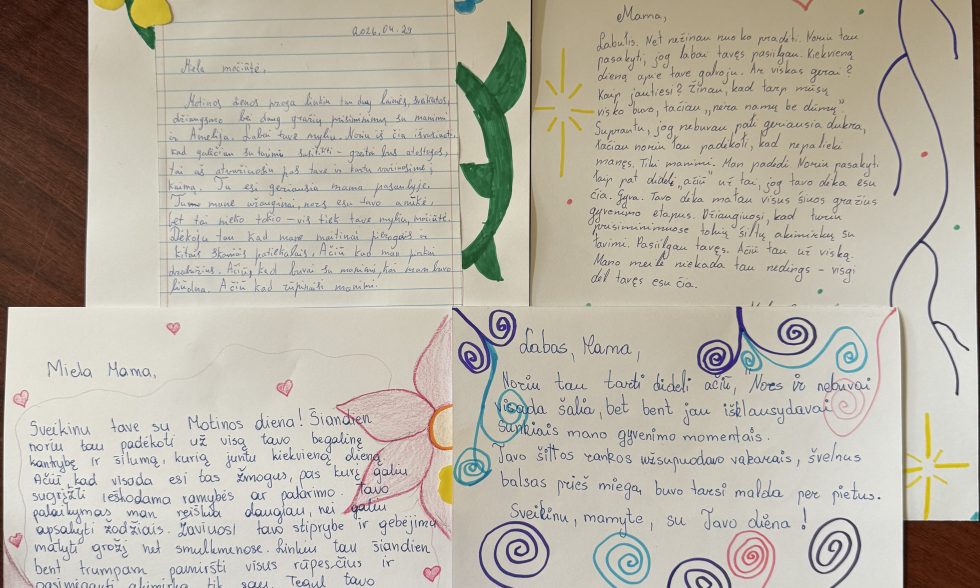 2026.04.29
Miela močiutė,
Motinos dienos proga linkiu tau daug laimės, sveikatos,
džiaugsmo bei daug gražių prisiminimų su manimi
ir Amelija. Labai tave myliu. Noriu iš čia išvažiuoti,
kad galėčiau su tavimi susitikti - greitai bus atostogos,
tai aš atvažiuosiu pas tave ir kartu važiuosime į
kaimą. Tu esi geriausia mama pasaulyje.
mane užauginai, nors esu tavo anūkė,
bet tai nieko tokio - vis tiek tave myliu, močiute.
Dėkoju tau kad mane maitinai pierogais ir
kitais skaniais patiekalais. Ačiū kad man pirkai
drabužius. Ačiū, kad buvai su manimi, kai man buvo
liūdna. Ačiū kad rūpinaisi manimi.
Mama,
Labutis. Net nežinau nuo ko pradėti. Noriu tau
pasakyti, jog labai tavęs pasiilgau. Kiekvieną
dieną apie tave galvoju. Ar viskas gerai?
Kaip jautiesi? Žinau, kad tarp mūsų
visko buvo, tačiau „nėra namų be dūmų".
Suprantu, jog nebuvau pati geriausia dukra,
tačiau noriu tau padėkoti, kad nepalieki
manęs. Tiki manimi. Man padedi. Noriu pasakyti
taip pat didelį „ačiū" už tai, jog tavo dėka esu
čia. Gyva. Tavo dėka matau visus šiuos gražius
gyvenimo etapus. Džiaugiuosi, kad turiu
prisiminimuose tokių šiltų akimirkų su
tavimi. Pasiilgau tavęs. Ačiū tau už viską.
Mano meilė niekada tau nedings - visgi
dėl tavęs esu čia.
Miela Mama,
Sveikinu tave su Motinos diena! Šiandien
noriu tau padėkoti už visą tavo begalinę
kantrybę ir šilumą, kurią juntu kiekvieną dieną.
Ačiū kad visada esi tas žmogus, pas kurį galiu
sugrįžti ieškodama ramybės ar patarimo. Tavo
palaikymas man reiškia daugiau, nei galiu
apsakyti žodžiais. Žaviuosi tavo stiprybe ir gebėjimu
matyti grožį net smulkmenose. Linkiu tau šiandien
bent trumpam pamiršti visus rūpesčius ir
pasimėgauti akimirka tik sau. Tegul tavo
Labas, Mama,
Noriu tau tarti didelį ačiū, Nors ir nebuvai
visada šalia, bet bent jau išklausydavai
sunkiais mano gyvenimo momentais.
Tavo šiltos rankos užsupuodavo vakarais, švelnus
balsas prieš miegą, buvo tarsi malda per pietus.
Sveikinu, mamyte, su Tavo diena!